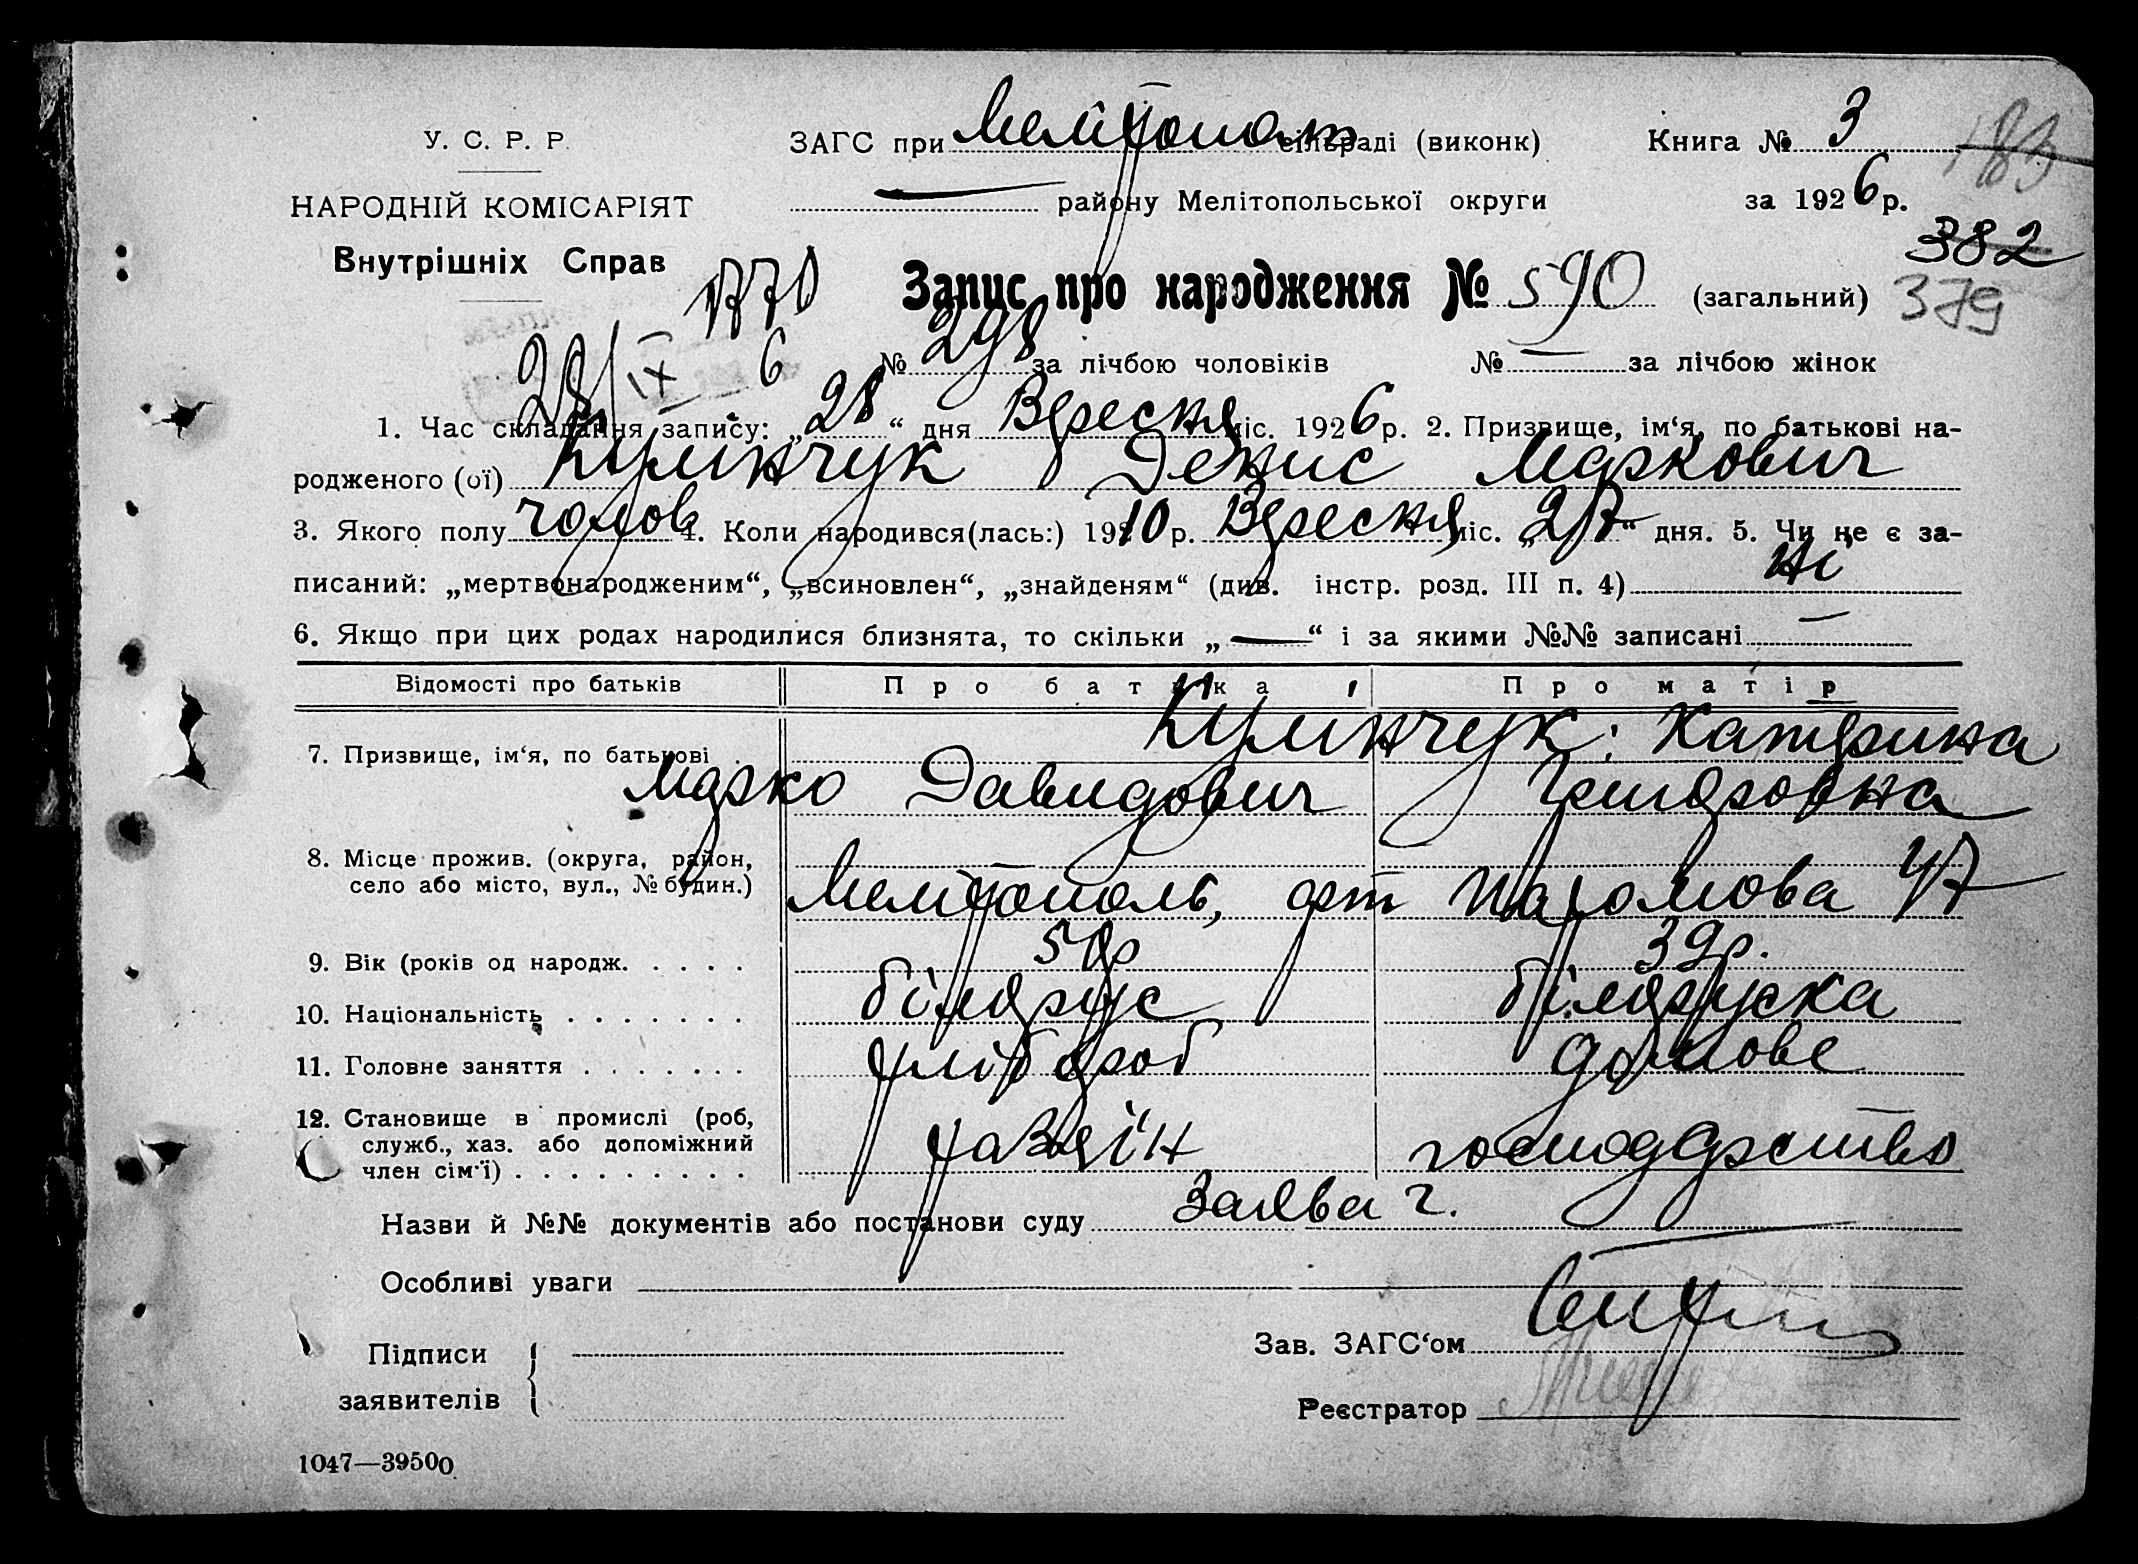 У. С. Р. Р.
НАРОДНІЙ КОМІСАРІЯТ
Внутрішніх Справ
ЗАГС при Мелітопол сільраді (виконк)
— району Мелітопольської округи
Книга № 3
за 1926 р.
183
382
379
Запис про народження № 590 (загальний)
28/IX 6
№ 298 за лічбою чоловіків № — за лічбою жінок
1. Час складання запису: „28“ дня Вересня міс. 1926 р. 2. Призвище, ім‘я, по батькові на-
родженого (ої) Кулінчук Денис Маркович
3. Якого полу чолов 4. Коли народився(лась:) 1910 р. Вересня міс. „27“ дня. 5. Чи не є за-
писаний: „мертвонародженим“, „всиновлен“, „знайденям“ (див. інстр. розд. III п. 4) ні
6. Якщо при цих родах народилися близнята, то скільки „—“ і за якими №№ записані —
Відомості про батьків Про батька Про матір
7. Призвище, ім‘я, по батькові Кулінчук: Катерина
Марко Давидович Григоровна
8. Місце прожив. (округа, район,
село або місто, вул., № будин.) Мелітополь, 47
9. Вік (років од народж. 50р 39р.
10. Національність білорус білоруска
11. Головне заняття хлібороб домове
12. Становище в промислі (роб,
служб., хаз. або допоміжний
член сім‘ї) хазяїн господарство
Назви й №№ документів або постанови суду Заява г.
Особливі уваги
Підписи
заявителів
Зав. ЗАГС‘ом
Реєстратор
1047—39500